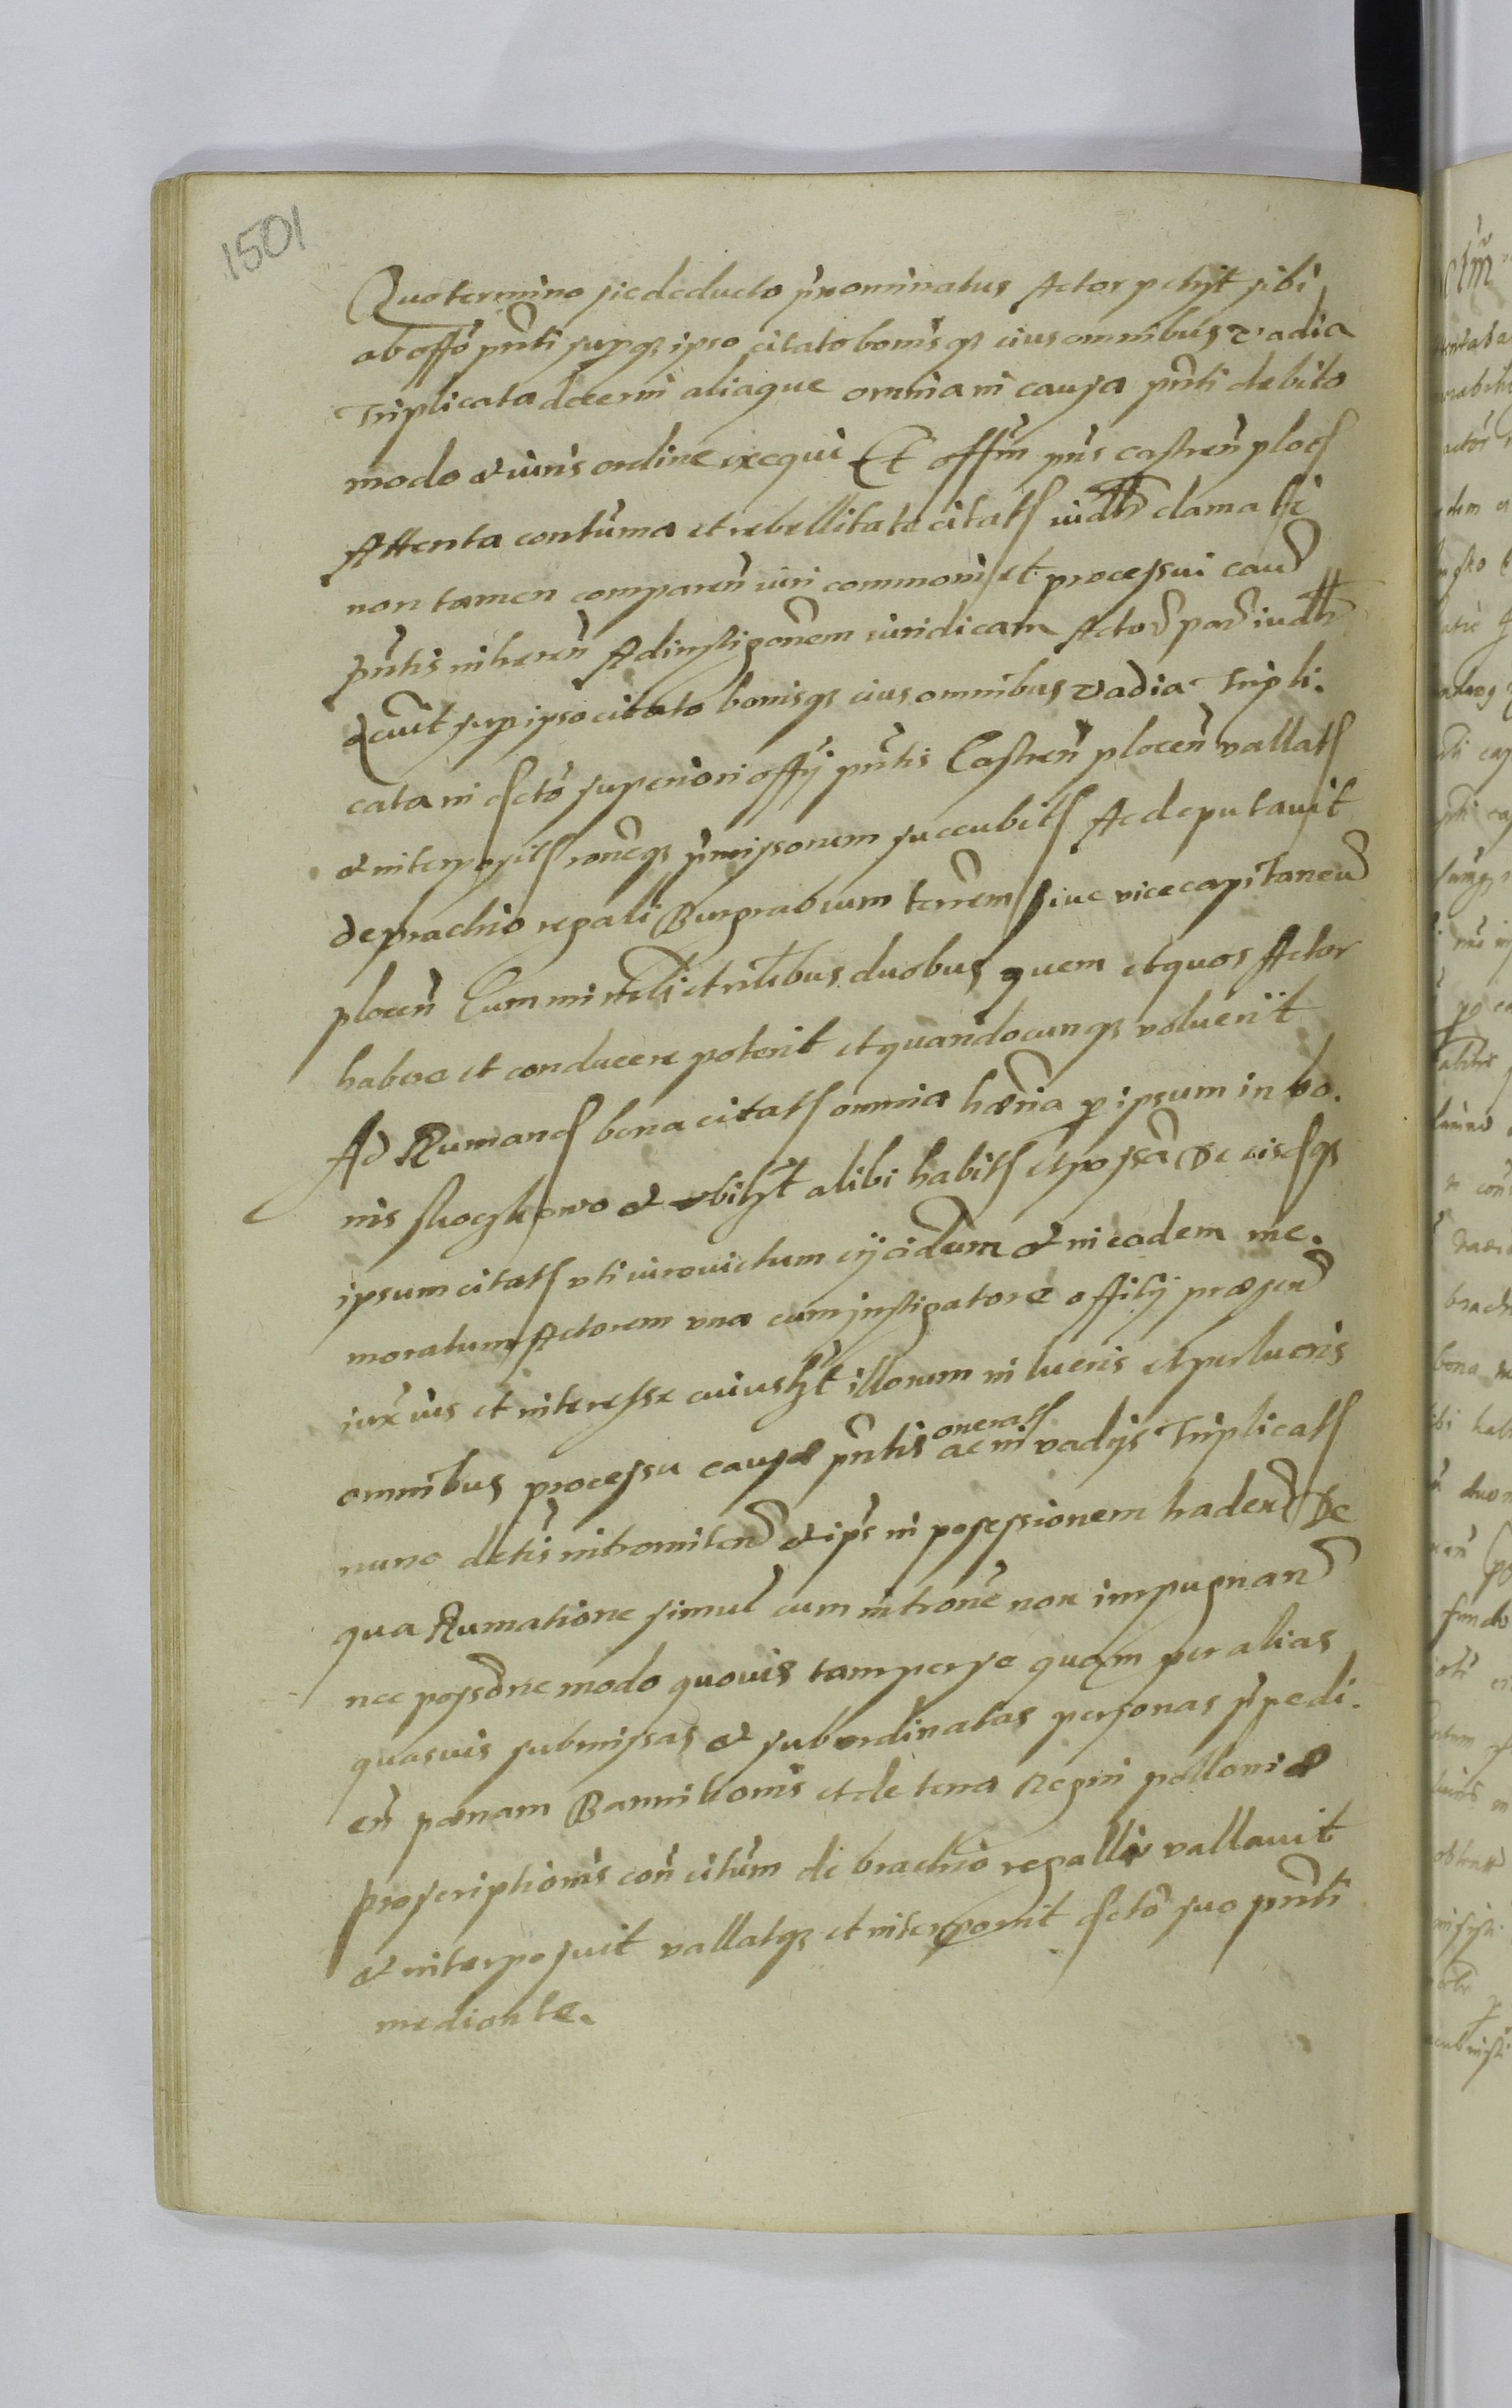 1501
Quo termino sic deducto p̃nominatus Actor petyt sibi
ab offo p̃nti supq; ipso citato bonisq; eius omnibus vadia
Triplicata decerni aliaque omnia in causa p̃nti debito
modo & iuris ordine exequi Et offm̃ p̃ns castren̄ ploc
Attenta contuma et rebellitate citati clamati
non tamen comparen̄ iuri commoni et processui
p̃ntis inheren̄ Ad instigõnem iuridicam Actor
sup ipso citato bonisq; eius omnibus vadia Tripli.
cata in superiori offy p̃ntis Castren̄ plocen̄ vallat
& interposit rõneq; p̃missorum succubit Ac deputauit
de prachio regali Burgrabium terrem siue vicecapitaneu
plocen̄ Cum mintrli et nlibus duobus quem et quos Actor
habere et conducere poterit et quandocunq; voluerit
Ad Rumand bona citati omnia hæria p ipsum in bo.
nis & vbilzt alibi habit et possa De eisdq;
ipsum citat vti iurevictum eijcidum & in eadem me.
moratum Actorem vna cum instigatore offity præsen
iux ius et interesse cuiuslzt illorum in lucris et perlucris
omnibus processu causæ p̃ntis ac in vadijs Triplicat
onerat
nunc intromitend & ips in possessionem tradend De
qua Rumatione simul cum introne non impugnand
nec possdne modo quouis tam per se quam per alias
quasuis submissas & subordinatas personas p̃pedi.
en̄ pœnam Bannitionis et de terra Regni polloniæ
proscriptionis con̄ citum de brachio regalli vallauit
& interposuit vallatq; et interponit dcto suo p̃nti
mediante.